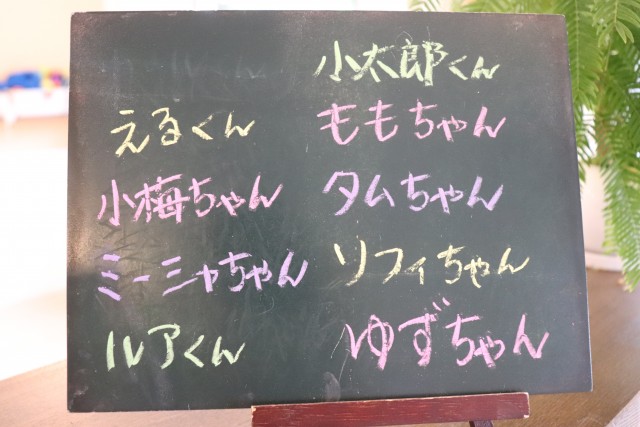 小太郎くん
ももちゃん
タムちゃん
ソフィちゃん
ゆずちゃん
えるくん
小梅ちゃん
ミーシャちゃん
ルアくん